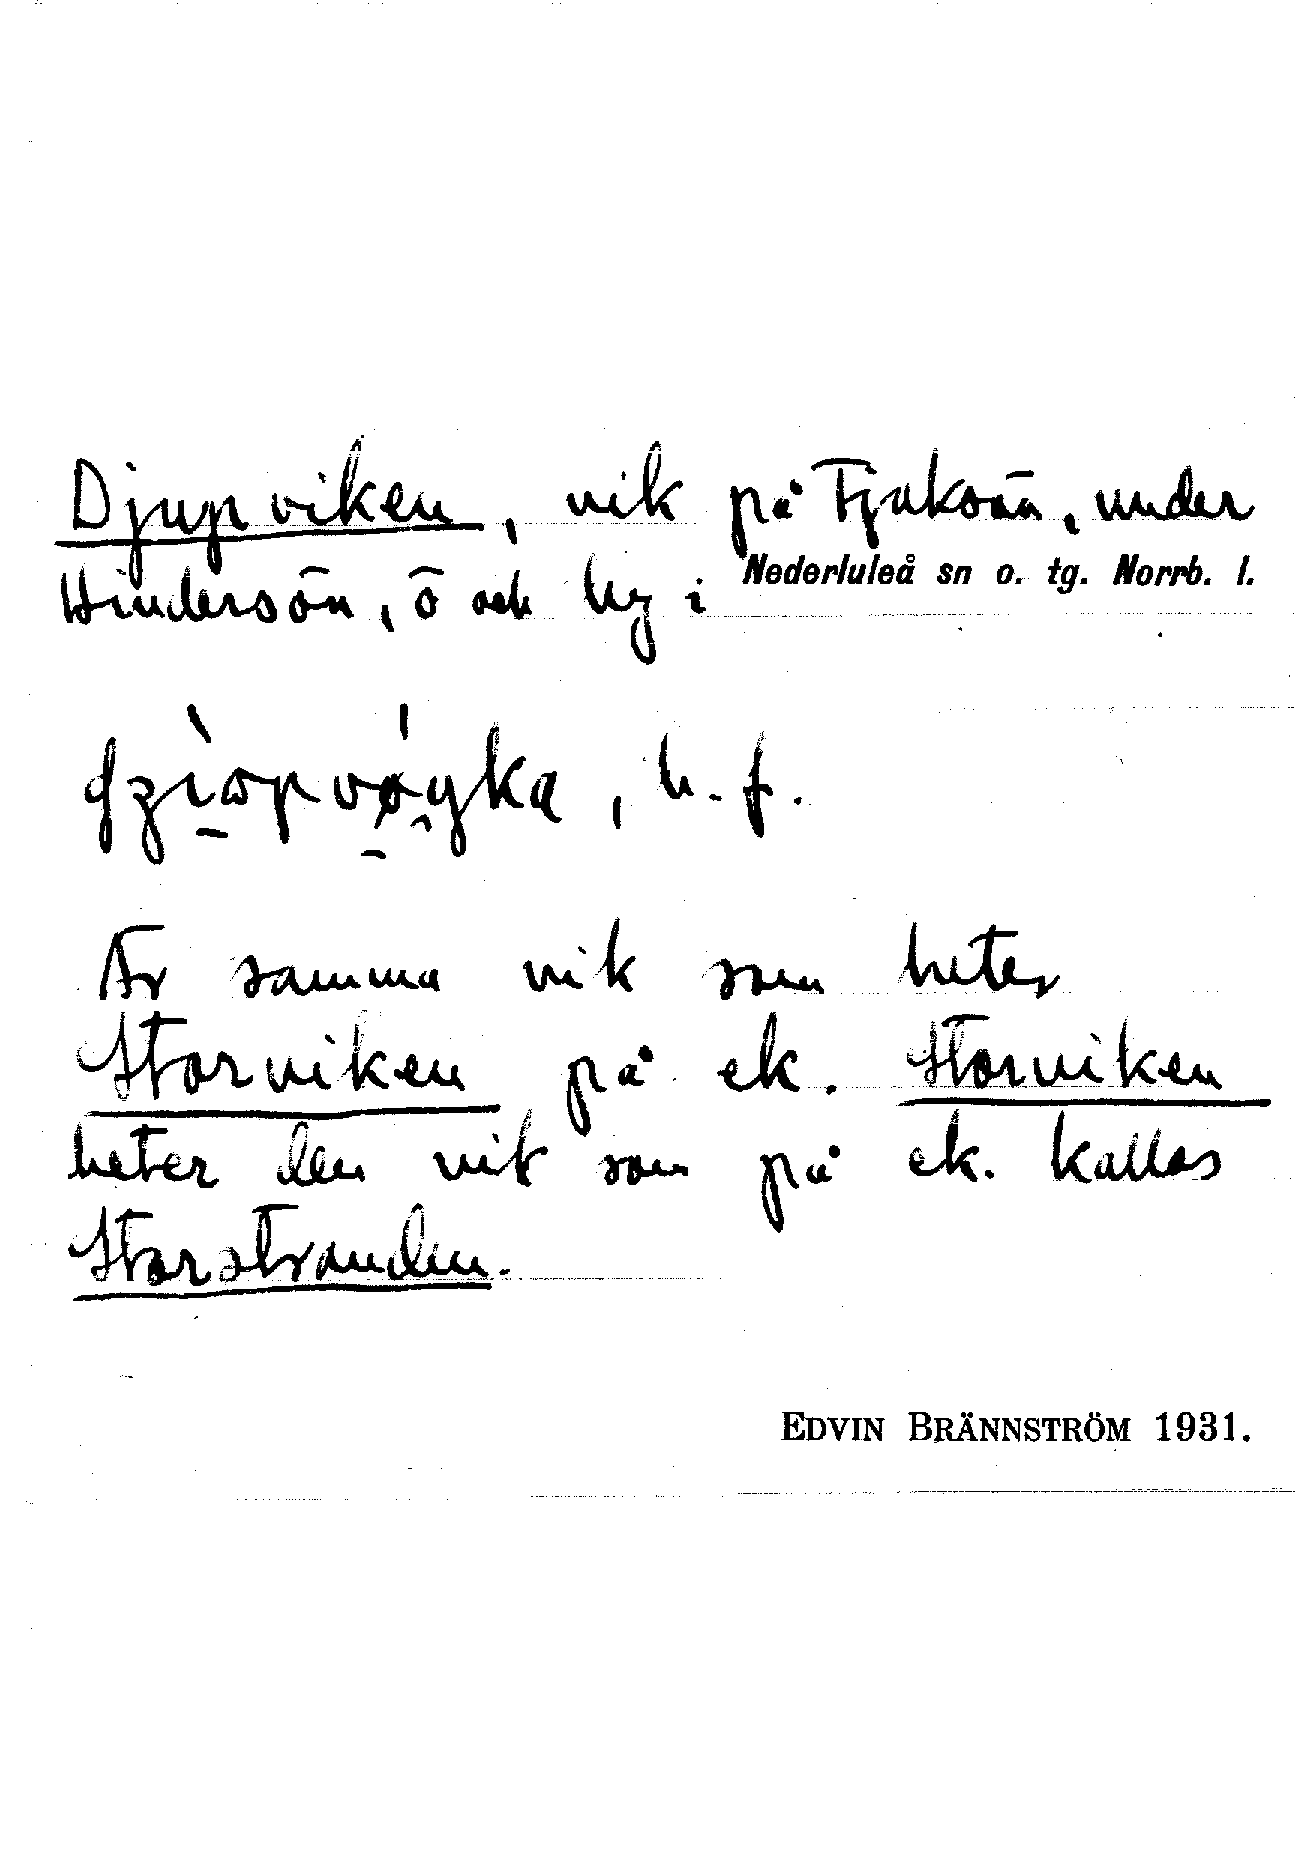 Djupviken, vik på Tjuksön, under
Hindersön, ö och by i Nederluleå sn o. tg. Norrb. l.
b. f.
Är samma vik som heter
Storviken på ek. Storviken
heter den vik som på ek. kallas
Storstranden.
EDVIN BRÄNNSTRÖM 1931.